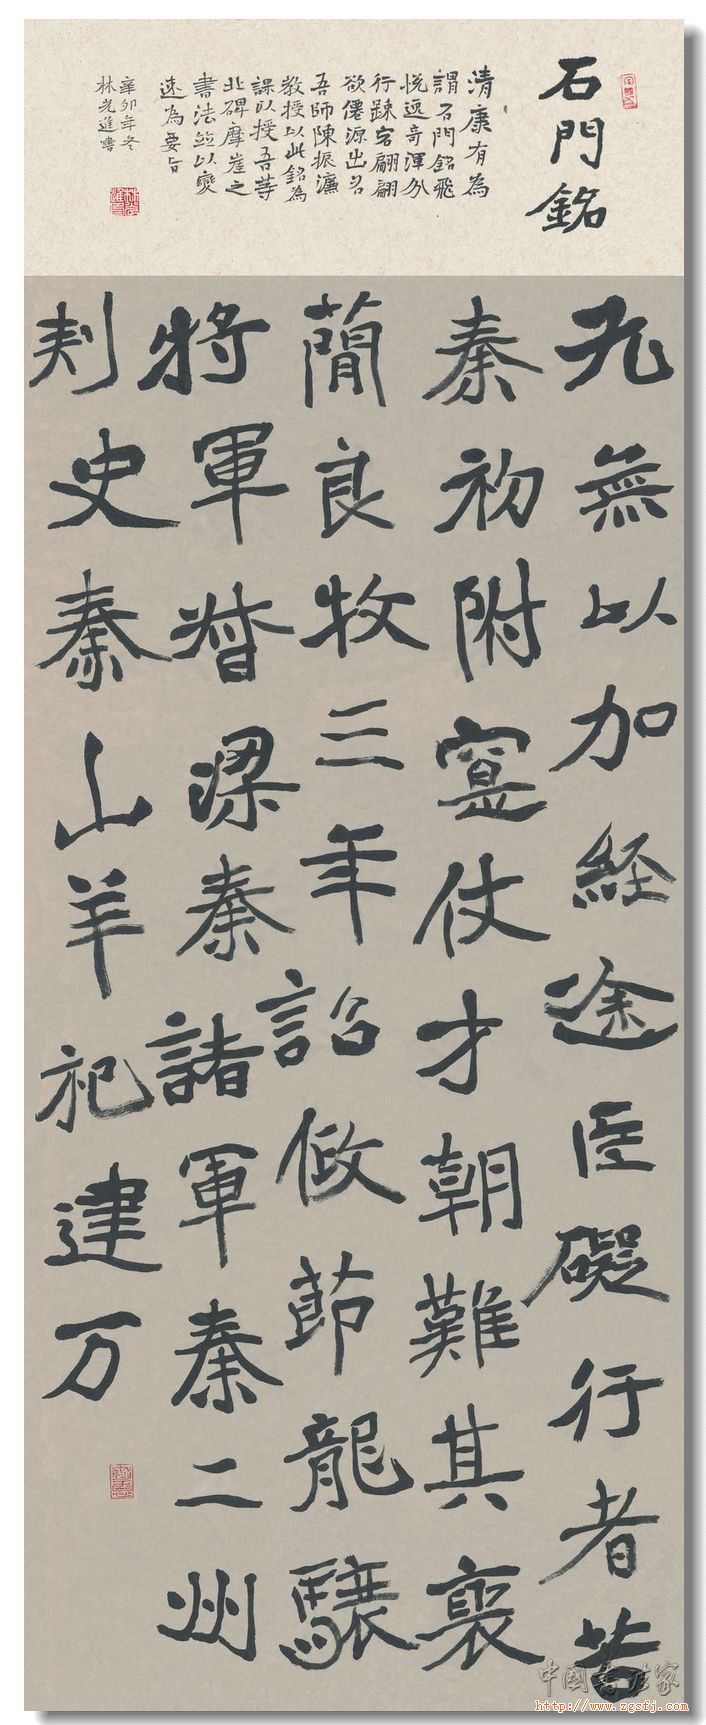 石門銘
清康有為
謂石門銘飛
行疎宕翩翩
欲僊源出
吾師陳振濂
教授以此銘為
課以授吾等
北碑摩崖之
書法並以變
速為要旨
辛卯年冬
林光進書
九無以加經途巨礙行者苦
秦初附寔仗才朝難其褒
簡良牧三年詔假節龍驤
將軍督梁秦諸軍秦二州
刾史泰山羊祀建万
中国书法家
http://www.zgsfj.com